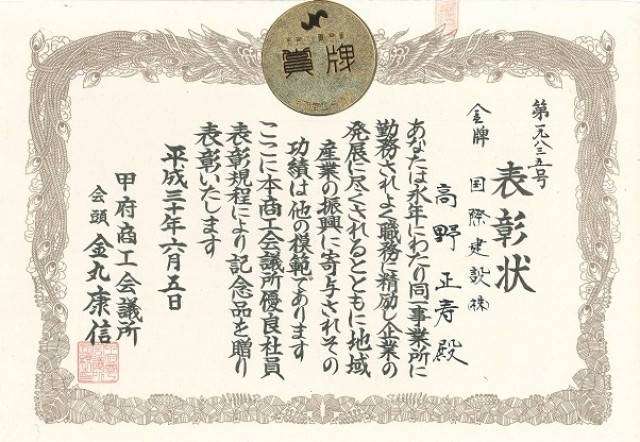 賞牌
第一九八三五号
表彰状
金牌 国際建設㈱
高野正寿殿
あなたは永年にわたり同一事業所に
勤務されよく職務に精励し企業の
発展に尽くされるとともに地域
産業の振興に寄与されその
功績は他の模範であります
ここに本商工会議所優良社員
表彰規程により記念品を贈り
表彰いたします
平成三十年六月五日
甲府商工会議所
会頭 金丸康信